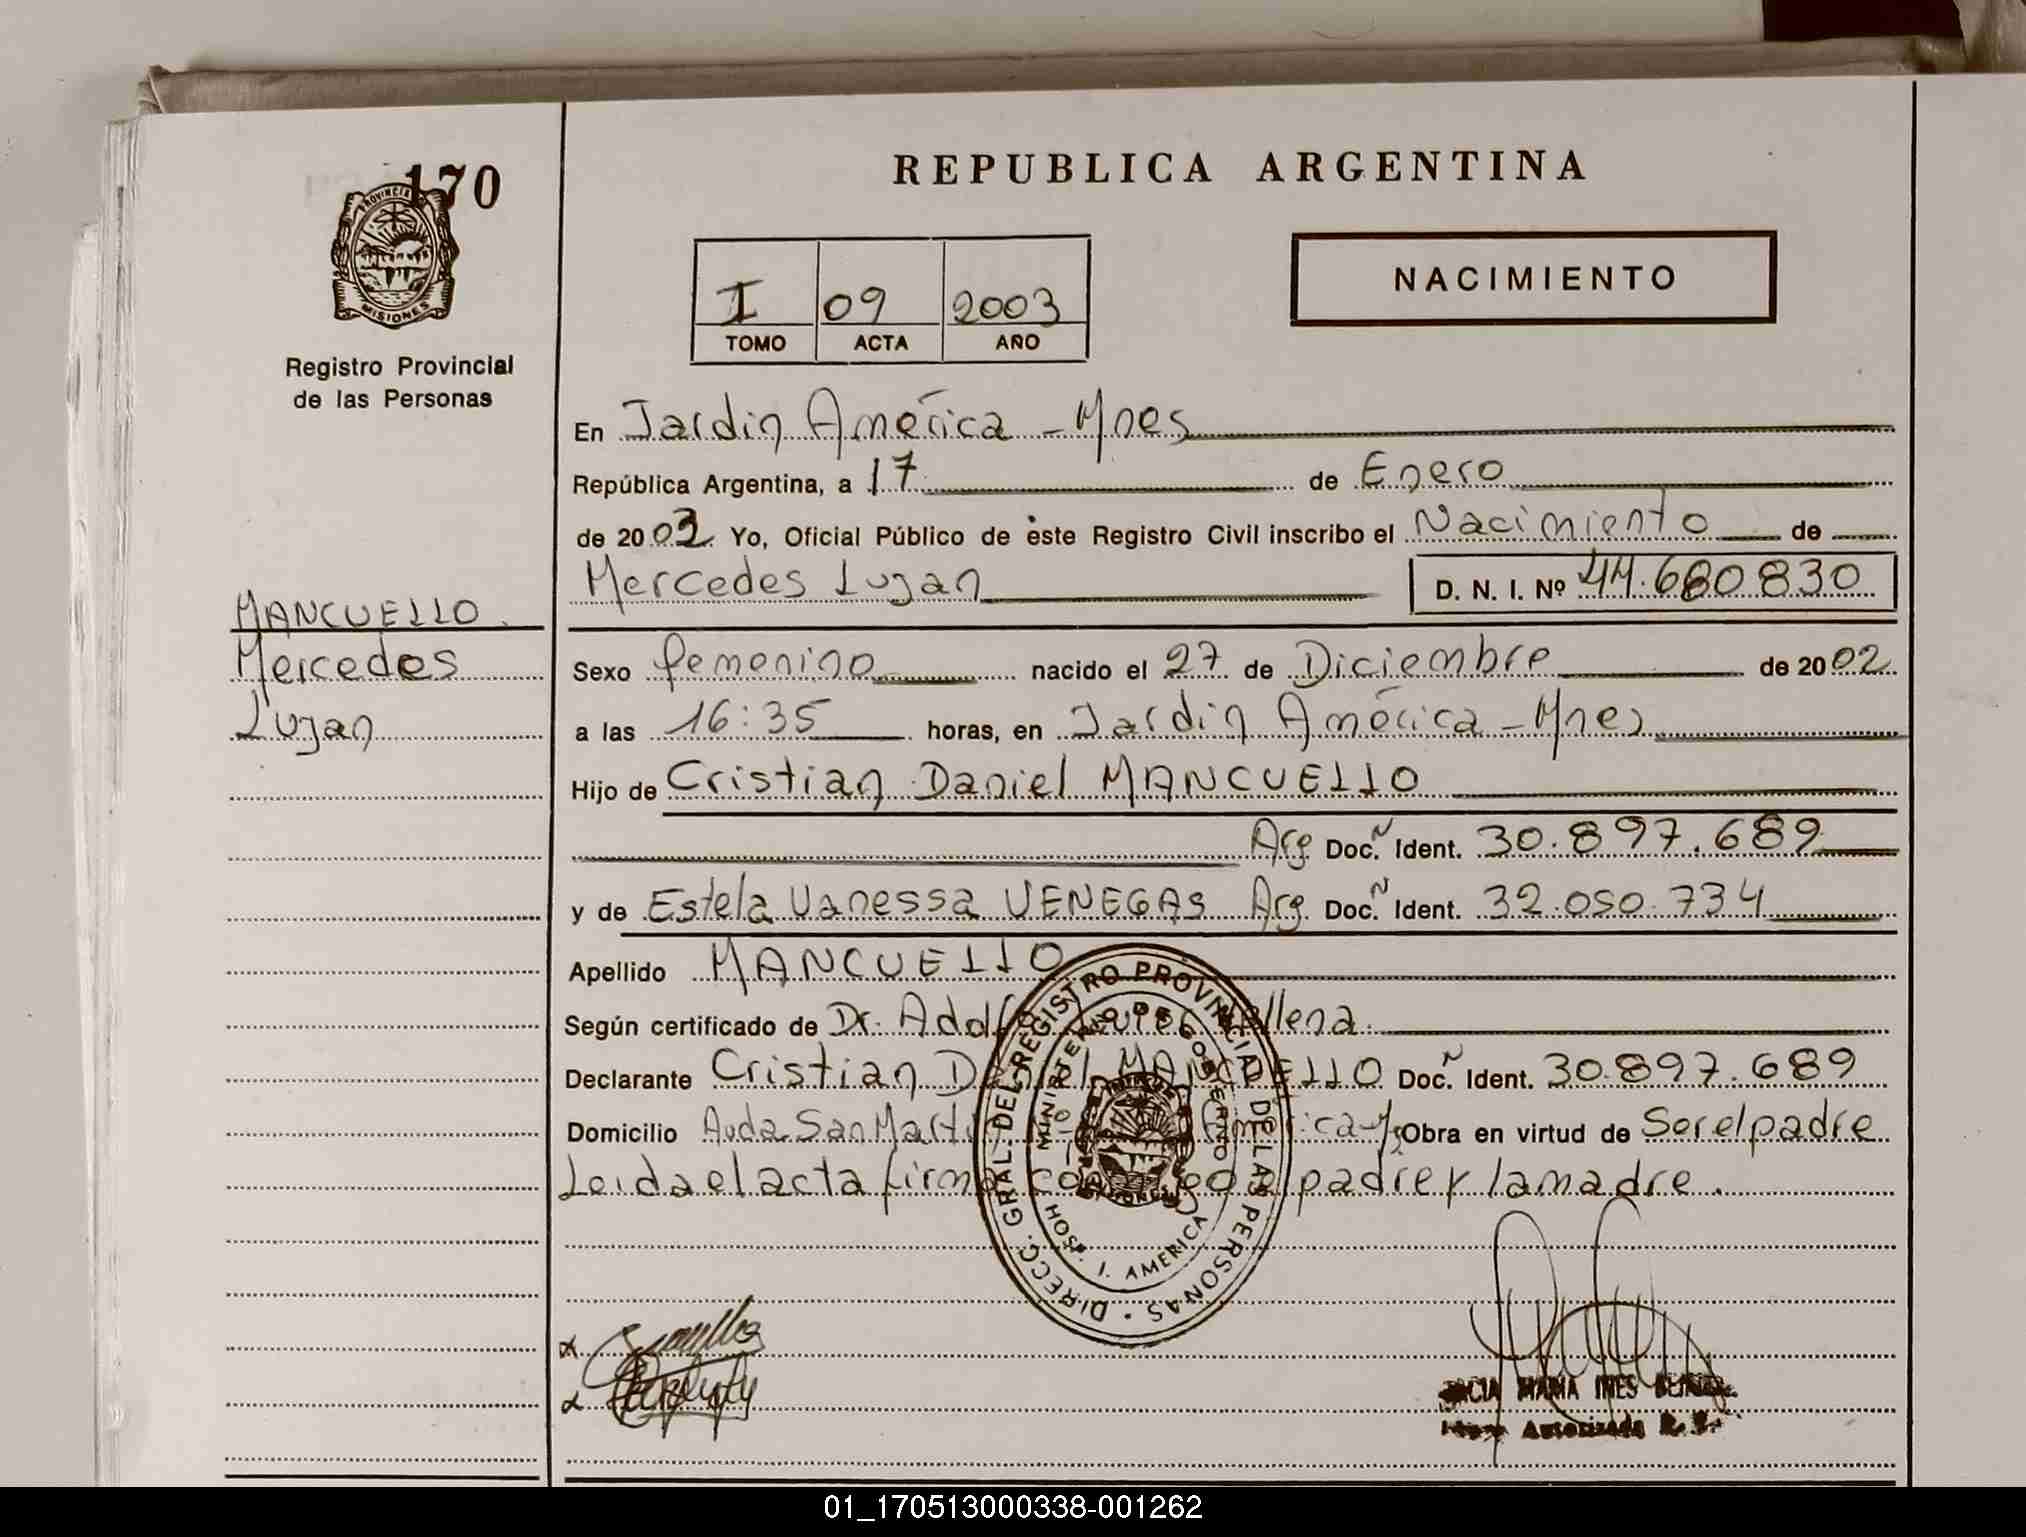 170
REPUBLICA ARGENTINA
PROVINCIA
MISIONES
I 09 2003
TOMO ACTA AÑO
NACIMIENTO
Registro Provincial
de las Personas
En Jardin América - Mnes
República Argentina, a 17 de Enero
de 2003 Yo, Oficial Público de éste Registro Civil inscribo el Nacimiento de
Mercedes Lujan D. N. I. Nº 44.680830
MANCUELLO
Mercedes
Lujan
Sexo femenino nacido el 27 de Diciembre de 2002
a las 16:35 horas, en Jardin América - Mnes
Hijo de Cristian Daniel MANCUELLO
Arg Doc. Ident. 30.897.689
y de Estela Vanessa VENEGAS Arg. Doc. Ident. 32.050.734
Apellido MANCUELLO
Según certificado de Dr.
Declarante Cristian Daniel MANCUELLO Doc. Ident. 30.897.689
Domicilio Avda San Martin Obra en virtud de Ser el padre
Leida el acta firma el padre y la madre.
DIRECC. GRAL. DEL REGISTRO PROVINCIAL DE LAS PERSONAS
MINISTERIO DE GOBIERNO
HOSP. J. AMERICA
MARIA INES
Autorizada
01_170513000338-001262